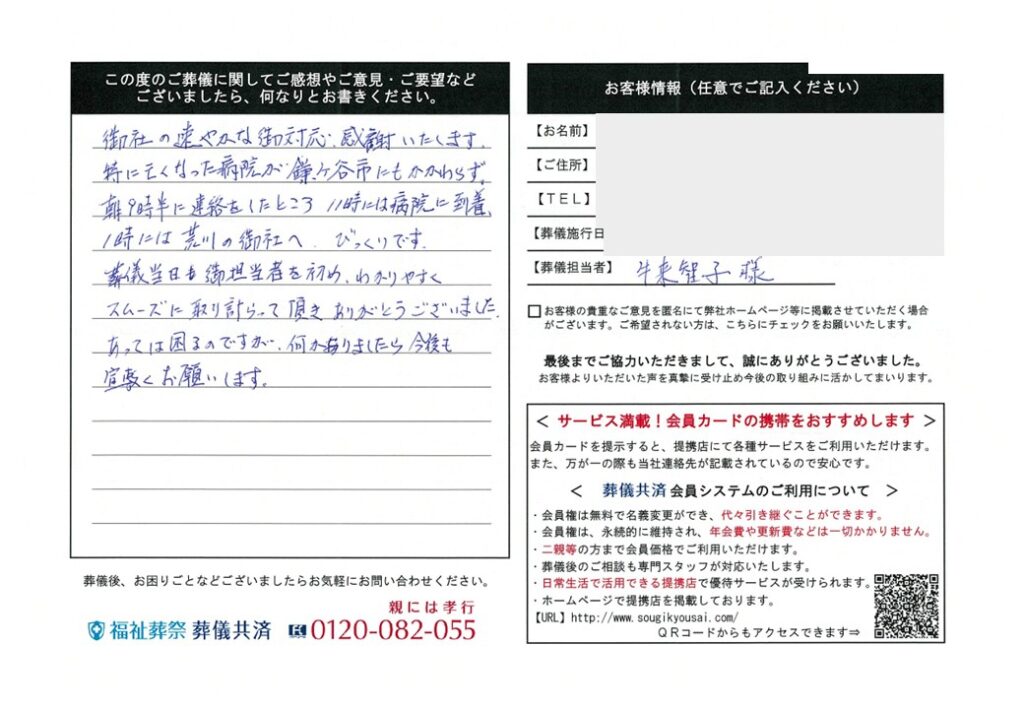 この度のご葬儀に関してご感想やご意見・ご要望など
ございましたら、何なりとお書きください。
御社の速やかな御対応、感謝いたします。
特に亡くなった病院が鎌ヶ谷市にもかかわらず。
朝9時半に連絡をしたところ 11時には病院に到着、
1時には荒川の御社へ、びっくりです。
葬儀当日も御担当者を初め、わかりやすく
スムーズに取り計らって頂きありがとうございました。
あっては困るのですが、何かありましたら今後も
宜敷くお願いします。
葬儀後、お困りごとなどございましたらお気軽にお問い合わせください。
親には孝行
福祉葬祭 葬儀共済 0120-082-055
お客様情報（任意でご記入ください）
【お名前】
【ご住所】
【ＴＥＬ】
【葬儀施行日
【葬儀担当者】 牛来智子 様
□お客様の貴重なご意見を匿名にて弊社ホームページ等に掲載させていただく場合
がございます。ご希望されない方は、こちらにチェックをお願いいたします。
最後までご協力いただきまして、誠にありがとうございました。
お客様よりいただいた声を真摯に受け止め今後の取り組みに活かしてまいります。
＜ サービス満載！会員カードの携帯をおすすめします ＞
会員カードを提示すると、提携店にて各種サービスをご利用いただけます。
また、万が一の際も当社連絡先が記載されているので安心です。
＜ 葬儀共済 会員システムのご利用について ＞
・会員権は無料で名義変更ができ、代々引き継ぐことができます。
・会員権は、永続的に維持され、年会費や更新費などは一切かかりません。
・二親等の方まで会員価格でご利用いただけます。
・葬儀後のご相談も専門スタッフが対応いたします。
・日常生活で活用できる提携店で優待サービスが受けられます。
・ホームページで提携店を掲載しております。
【URL】http://www.sougikyousai.com/
ＱＲコードからもアクセスできます⇒